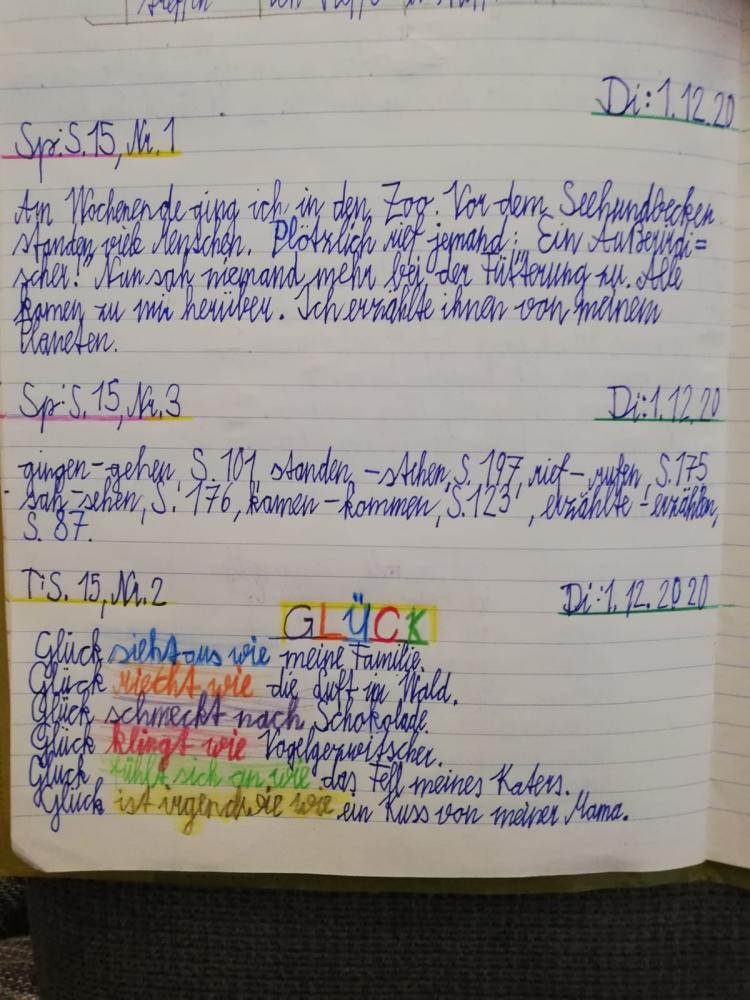 treffen
Di: 1.12.20
Sp: S. 15, Nr. 1
Am Wochenende ging ich in den Zoo. Vor dem Seehundbecken
standen viele Menschen. Plötzlich rief jemand: „Ein Außerirdi=
scher!" Nun sah niemand mehr bei der Fütterung zu. Alle
kamen zu mir herüber. Ich erzählte ihnen von meinem
Planeten.
Sp: S. 15, Nr. 3
Di: 1.12.20
gingen - gehen, S. 101, standen - stehen, S. 197, rief - rufen, S. 175
sah - sehen, S. 176, kamen - kommen, S. 123, erzählte - erzählen,
S. 87.
T: S. 15, Nr. 2
Di: 1.12.2020
GLÜCK
Glück sieht aus wie meine Familie.
Glück riecht wie die Luft im Wald.
Glück schmeckt nach Schokolade.
Glück klingt wie Vogelgezwitscher.
Glück fühlt sich an wie das Fell meines Katers.
Glück ist irgendwie wie ein Kuss von meiner Mama.